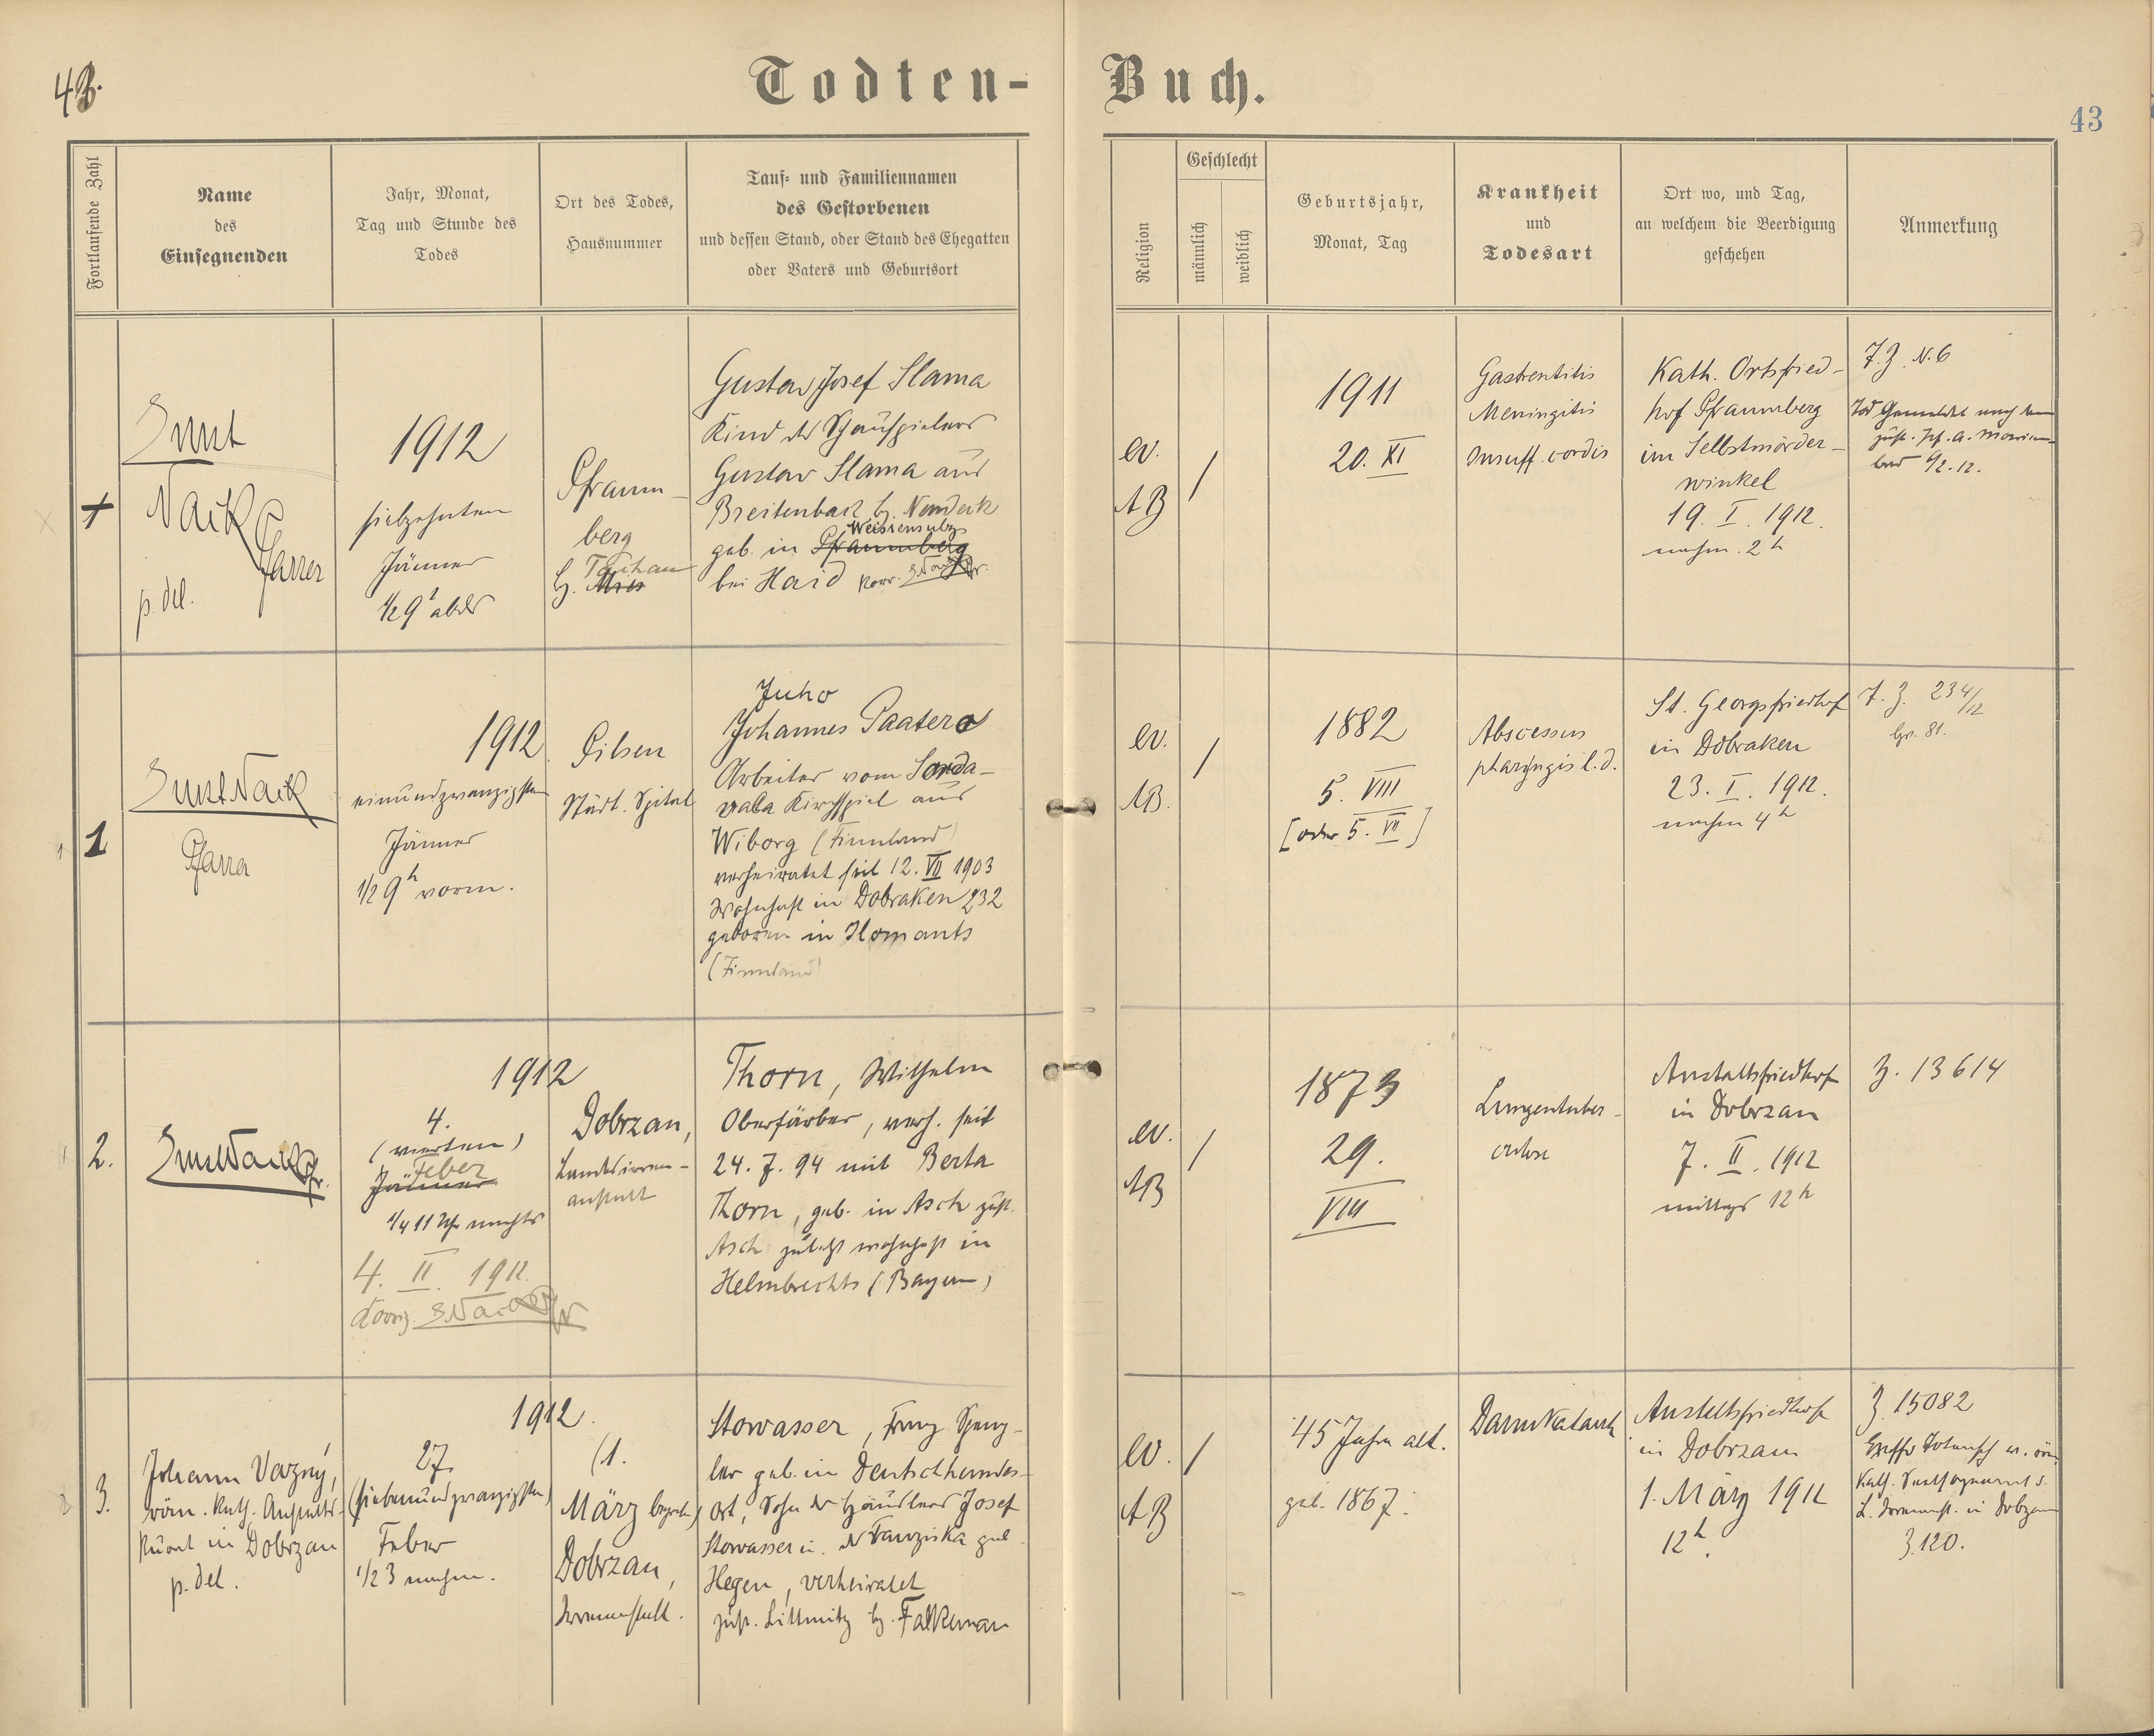 43.
Todten-
Buch.
43
Fortlaufende Zahl
Name
des
Einsegnenden
Jahr, Monat,
Tag und Stunde des
Todes
Ort des Todes,
Hausnummer
Tauf- und Familiennamen
des Gestorbenen
und dessen Stand, oder Stand des Ehegatten
oder Vaters und Geburtsort
Religion
Geschlecht
männlich
weiblich
Geburtsjahr,
Monat, Tag
Krankheit
und
Todesart
Ort wo, und Tag,
an welchem die Beerdigung
geschehen
Anmerkung
+
Ernst
Pfarrer
p. del.
1912
siebzehnten
Jänner
1/2 9 abds
Pfraum-
berg
Tachau
b. Mies
Gustav Josef Slama
Kind des Schauspielers
Gustav Slama aus
Breitenbach b. Neudeck
Weissensulz
geb. in Pfraumberg
bei Haid korr.
ev.
AB
/
1911
20. XI
Gastrentitis
Meningitis
Insuff. cordis
Kath. Ortsfried-
hof Pfraumberg
im Selbstmörder-
winkel
19. I. 1912.
nachm. 2 h
J. Z. N. 6
1
Pfarrer
1912
einundzwanzigsten
Jänner
1/2 9 h vorm.
Pilsen
Städt. Spital
Juho
Johannes Paatero
Arbeiter vom Sorda-
vala Kirchspiel aus
Wiborg (Finnland)
verheiratet seit 12. VII 1903
Wohnhaft in Dobraken 232
geboren in Ilomants
(Finnland)
ev.
AB.
/
1882
5. VIII
[oder 5. VII]
Abscessus
pharyngis l. d.
St. Georgsfriedhof
in Dobraken
23. I. 1912.
nachm 4 h
J. Z. 234/12
Gr. 81.
2.
1912
4.
(vierten)
Feber
Jänner
1/4 11 Uhr nachts
4. II. 1912.
Dobrzan,
Landesirren-
anstalt
Thorn, Wilhelm
Oberfärber, verh. seit
24. 7. 94 mit Berta
Thorn, geb. in Asch zust.
Asch zuletzt wohnhaft in
Helmbrechts (Bayern)
ev.
AB
/
1873
29.
VIII
Lungentuber-
culose
Anstaltsfriedhof
in Dobrzan
7. II. 1912
mittags 12 h
Z. 13614
3.
Johann Vazný,
röm. kath. Anstalts-
kurat in Dobrzan
p. del.
1912.
27.
(siebenundzwanzigsten)
Feber
1/2 3 nachm.
(1.
März begrab.)
Dobrzan,
Irrenanstalt.
Stowasser, Franz Speng-
ler geb. in Deutschhendes-
ort, Sohn des Händlers Josef
Stowasser u. d. Franziska geb.
Hegen, verheiratet
zust. Littmitz b. Falkenau
ev.
AB
/
45 Jahre alt.
geb. 1867.
Darmkatarrh
Anstaltsfriedhof
in Dobrzan
1. März 1912
12 h.
Z. 15082
Z. 120.